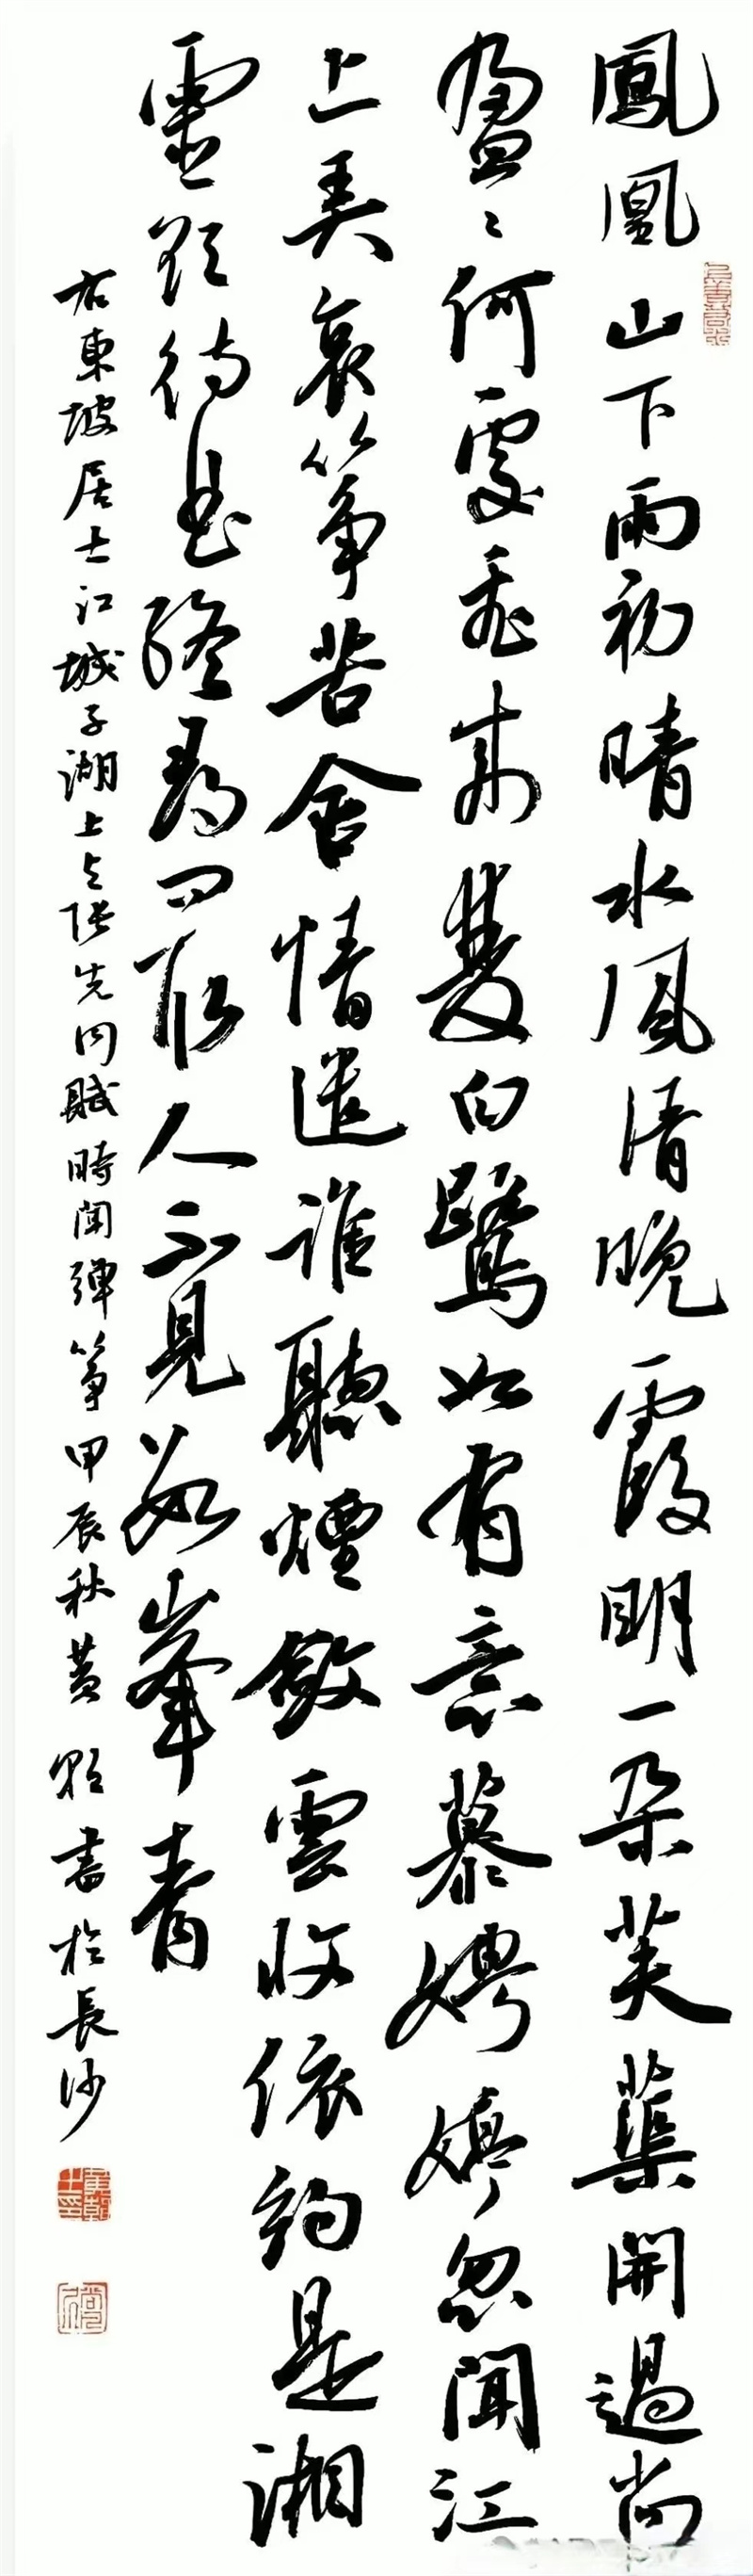 鳳凰山下雨初晴水風清晚霞明一朵芙蕖開過尚
盈〻何處飛來雙白鷺如有意慕娉婷忽聞江
上弄哀箏苦含情遣誰聽煙斂雲收依約是湘
靈欲待曲終尋問取人不見數峯青
右東坡居士江城子湖上與張先同賦時聞彈箏甲辰秋黃 書於長沙